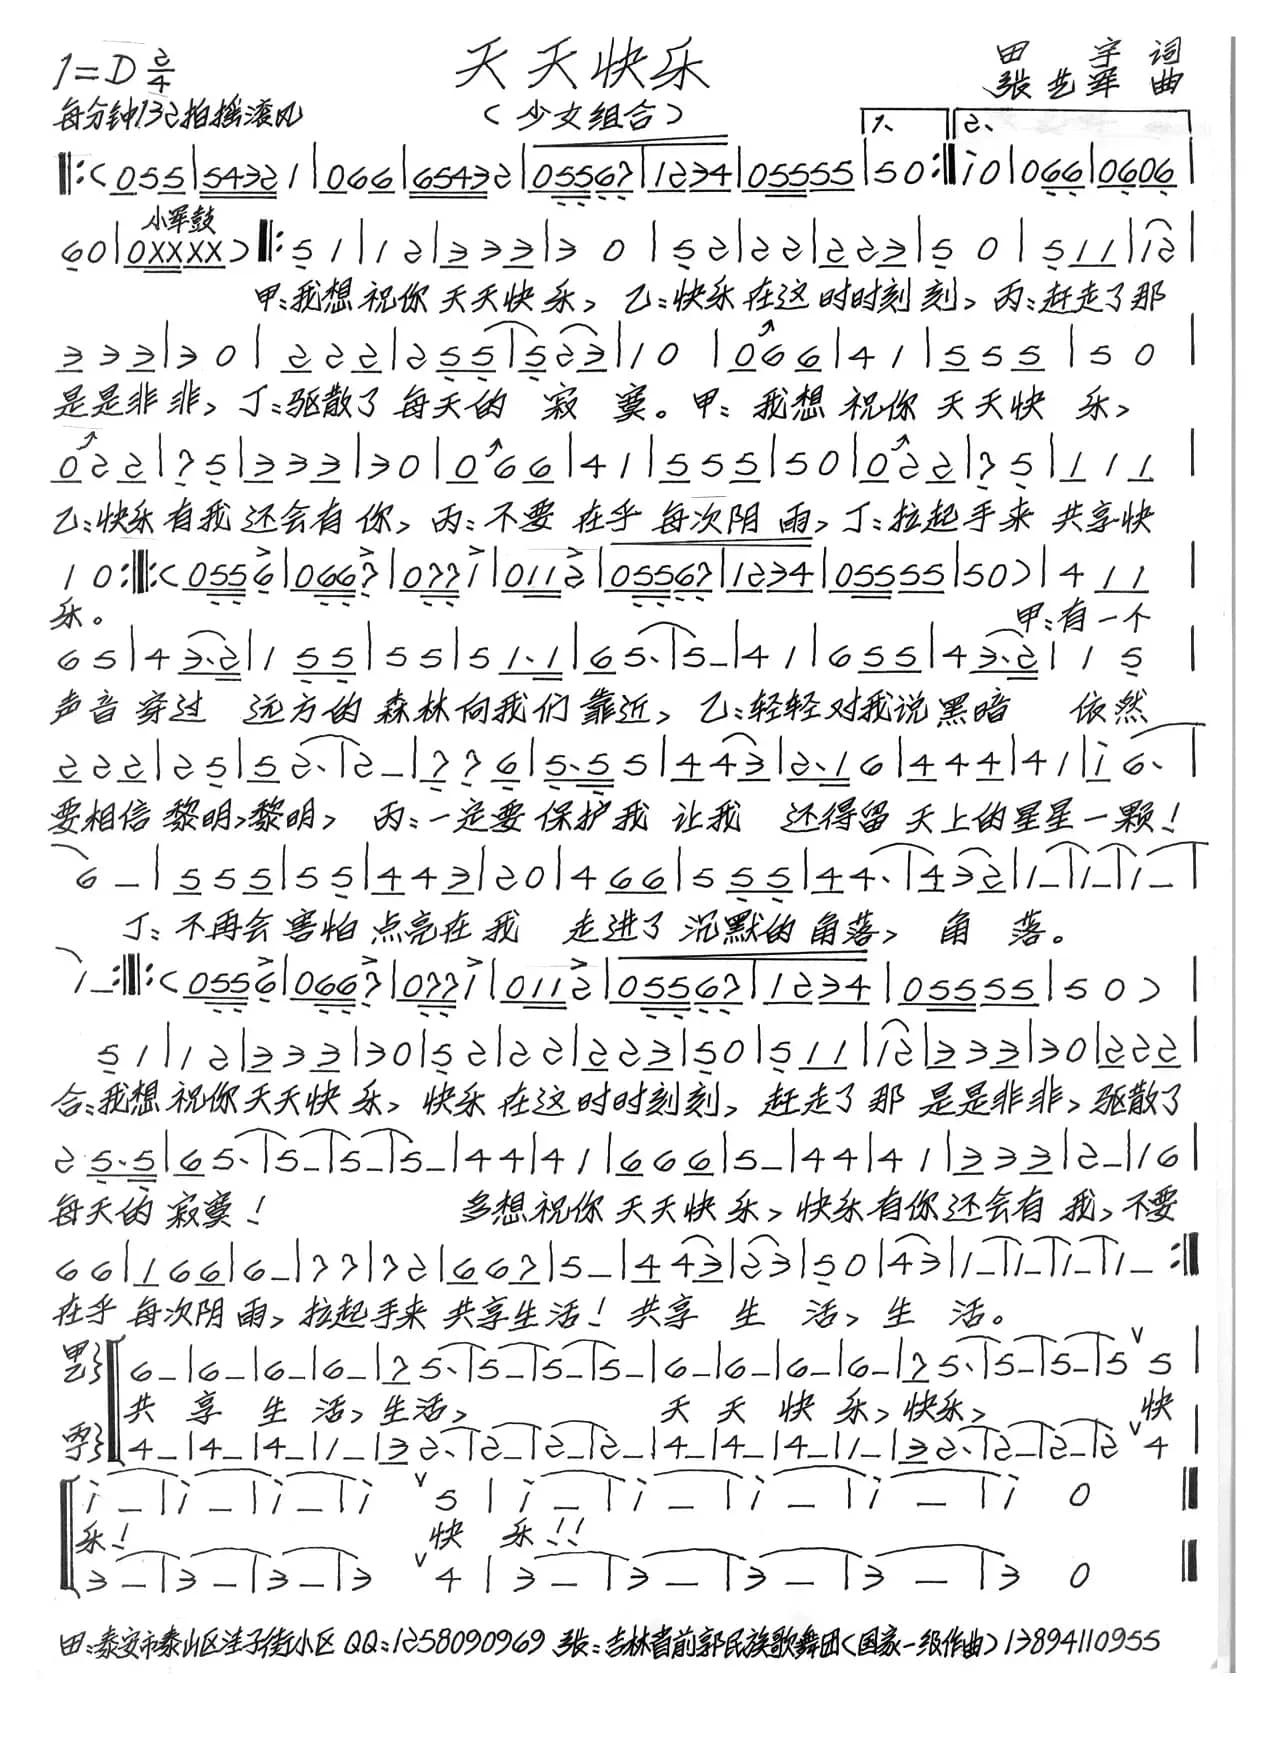 1=D 2/4
天天快乐
田宇 词
张艺军 曲
每分钟132拍摇滚风
（少女组合）
1、 2、
‖:(055|5432 1|066|65432|05567|1234|055555|50:‖i0|066|0606|
小军鼓
60|0XXXX)‖:51|12|333|30|52|22|223|50|511|12|
甲:我想祝你天天快乐、 乙:快乐在这时时刻刻、 丙:赶走了那
333|30|222|255|523|10|066|41|555|50|
是是非非、丁:驱散了每天的寂寞。甲:我想祝你天天快乐、
022|75|333|30|066|41|555|50|022|75|111|
乙:快乐有我还会有你、丙:不要在乎每次阴雨、丁:拉起手来共享快
10:‖:(0556|0667|0771|0112|05567|1234|055555|50)|411|
乐。 甲:有一个
65|43·2|155|55|51·1|65·|5-|41|655|43·2|15|
声音穿过 远方的森林向我们靠近、乙:轻轻对我说黑暗 依然
222|25|52·|2-|776|5·55|443|2·16|444|41|i6·|
要相信黎明、黎明、 丙:一定要保护我让我 还得留天上的星星一颗！
6-|555|55|443|20|466|555|44·|432|1-|1-|1-|
丁:不再会害怕点亮在我 走进了沉默的角落、角落。
1-:‖:(0556|0667|0771|0112|05567|1234|055555|50)|
51|12|333|30|52|22|223|50|511|12|333|30|222|
合:我想祝你天天快乐、快乐在这时时刻刻、赶走了那是是非非、驱散了
25·5|65·|5-|5-|5-|44|41|666|5-|44|41|333|2-|16|
每天的寂寞！ 多想祝你天天快乐、快乐有你还会有我、不要
66|166|6-|77|72|667|5-|443|23|50|43|1-|1-|1-|1-:‖
在乎每次阴雨、拉起手来共享生活！共享生活、生活。
6-|6-|6-|6-|75·|5-|5-|5-|6-|6-|6-|6-|75·|5-|5-|5 5|
共享生活、生活、 天天快乐、快乐、 快
4-|4-|4-|1-|32·|2-|2-|2-|4-|4-|4-|1-|32·|2-|2-|2 4|
i-|i-|i-|i 5|i-|i-|i-|i-|i 0‖
乐！ 快乐！！
3-|3-|3-|3 4|3-|3-|3-|3-|3 0‖
田:泰安市泰山区洼子街小区 QQ:1258090969 张:吉林省前郭民族歌舞团(国家一级作曲)13894110955